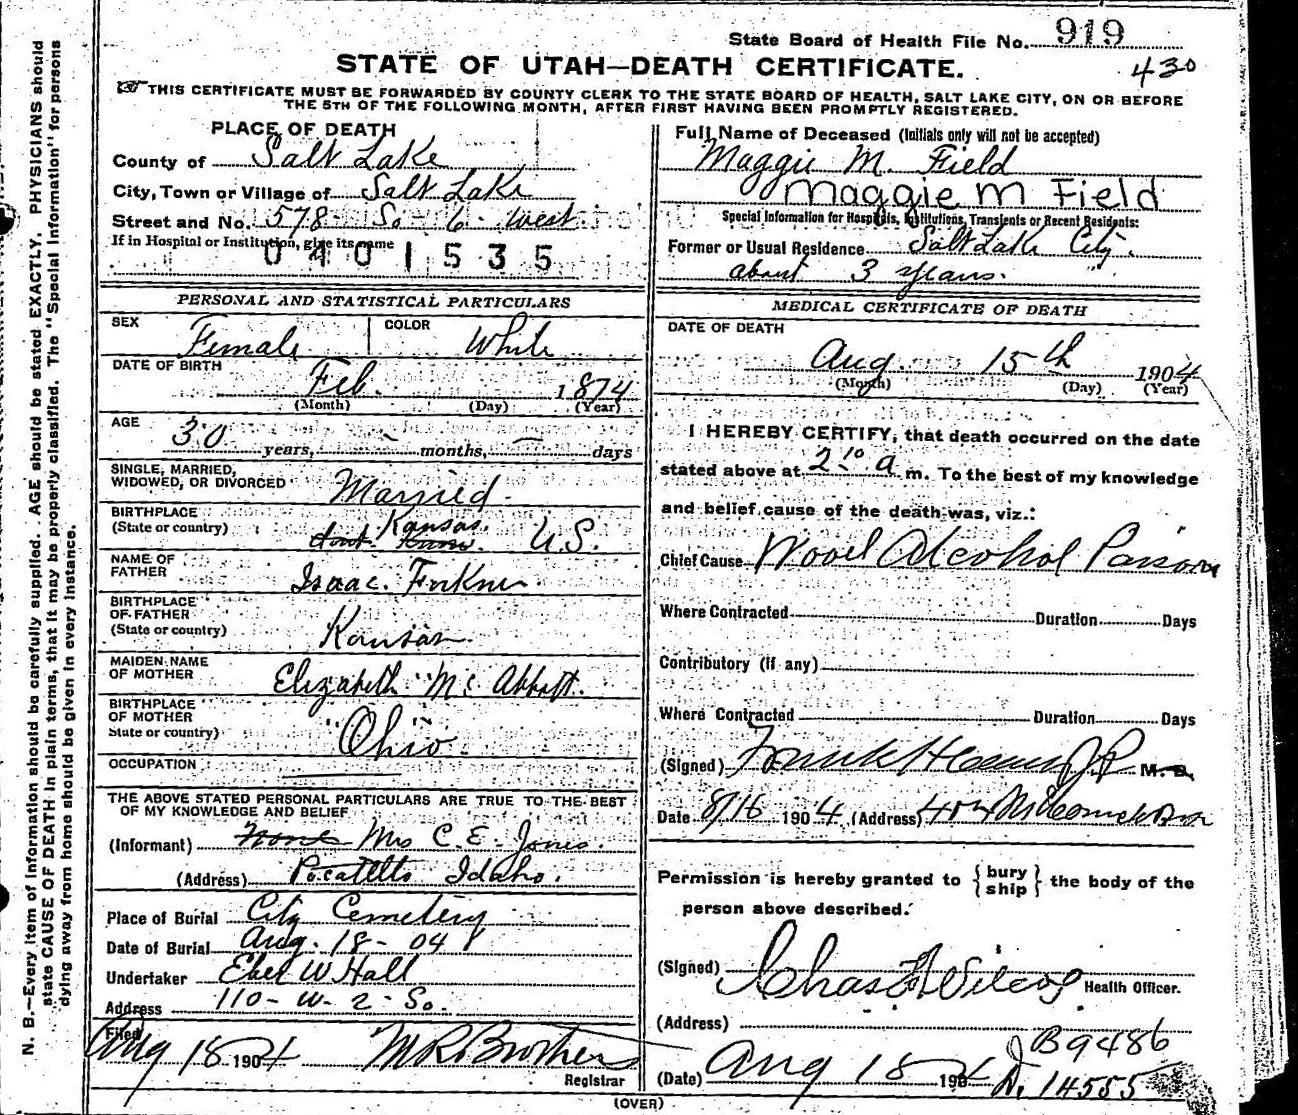 State Board of Health File No. 919
430
STATE OF UTAH—DEATH CERTIFICATE.
THIS CERTIFICATE MUST BE FORWARDED BY COUNTY CLERK TO THE STATE BOARD OF HEALTH, SALT LAKE CITY, ON OR BEFORE
THE 5TH OF THE FOLLOWING MONTH, AFTER FIRST HAVING BEEN PROMPTLY REGISTERED.
N. B.—Every item of information should be carefully supplied. AGE should be stated EXACTLY. PHYSICIANS should
state CAUSE OF DEATH in plain terms, that it may be properly classified. The "Special Information" for persons
dying away from home should be given in every instance.
PLACE OF DEATH
County of Salt Lake
City, Town or Village of Salt Lake
Street and No. 578 So- 6- West
If in Hospital or Institution, give its name
0401535
Full Name of Deceased (Initials only will not be accepted)
Maggie M. Field
Maggie M Field
Special Information for Hospitals, Institutions, Transients or Recent Residents:
Former or Usual Residence Salt Lake City.
about 3 years.
PERSONAL AND STATISTICAL PARTICULARS
SEX Female
COLOR White
DATE OF BIRTH
Feb. 1874
(Month) (Day) (Year)
AGE
30 years, - months, - days
SINGLE, MARRIED,
WIDOWED, OR DIVORCED Married.
BIRTHPLACE
(State or country) Kansas. U.S.
NAME OF
FATHER Isaac
BIRTHPLACE
OF FATHER
(State or country) Kansas
MAIDEN NAME
OF MOTHER Elizabeth
BIRTHPLACE
OF MOTHER
State or country) "Ohio"
OCCUPATION
THE ABOVE STATED PERSONAL PARTICULARS ARE TRUE TO THE BEST
OF MY KNOWLEDGE AND BELIEF
(Informant) None Mrs C. E. Jones.
(Address) Pocatello Idaho.
Place of Burial City Cemetery
Date of Burial Aug. 18- 04
Undertaker Eber W Hall
Address 110- W- 2- So.
Filed
Aug 18 1904
Registrar
MEDICAL CERTIFICATE OF DEATH
DATE OF DEATH
Aug. 15th 1904
(Month) (Day) (Year)
I HEREBY CERTIFY, that death occurred on the date
stated above at 2:10 a m. To the best of my knowledge
and belief cause of the death was, viz.:
Chief Cause Wood Alcohol Poison
Where Contracted Duration Days
Contributory (if any)
Where Contracted Duration Days
(Signed) Frank H M. D.
Date 8/16 1904 (Address)
Permission is hereby granted to { bury
ship } the body of the
person above described.
(Signed) Chas F Wilcox Health Officer.
(Address)
B9486
(Date) Aug 18 1904 D. 14555
(OVER)